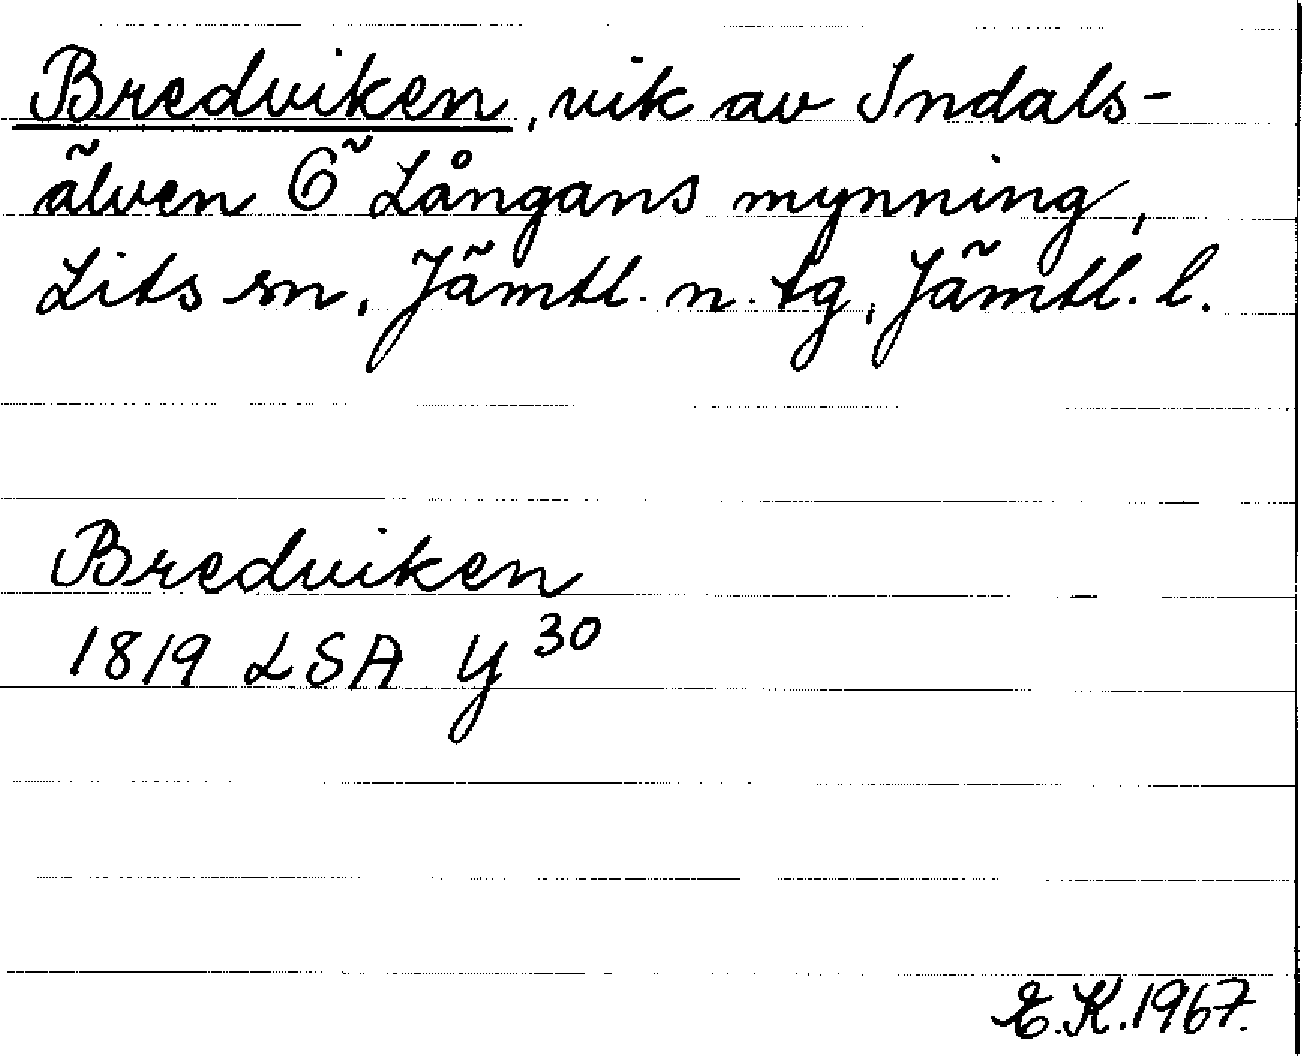 Bredviken, vik av Indals-
älven Ö Långans mynning,
Lits sn, Jämtl. n. tg, Jämtl. l.
Bredviken
1819 LSA Y 30
E.K. 1967.